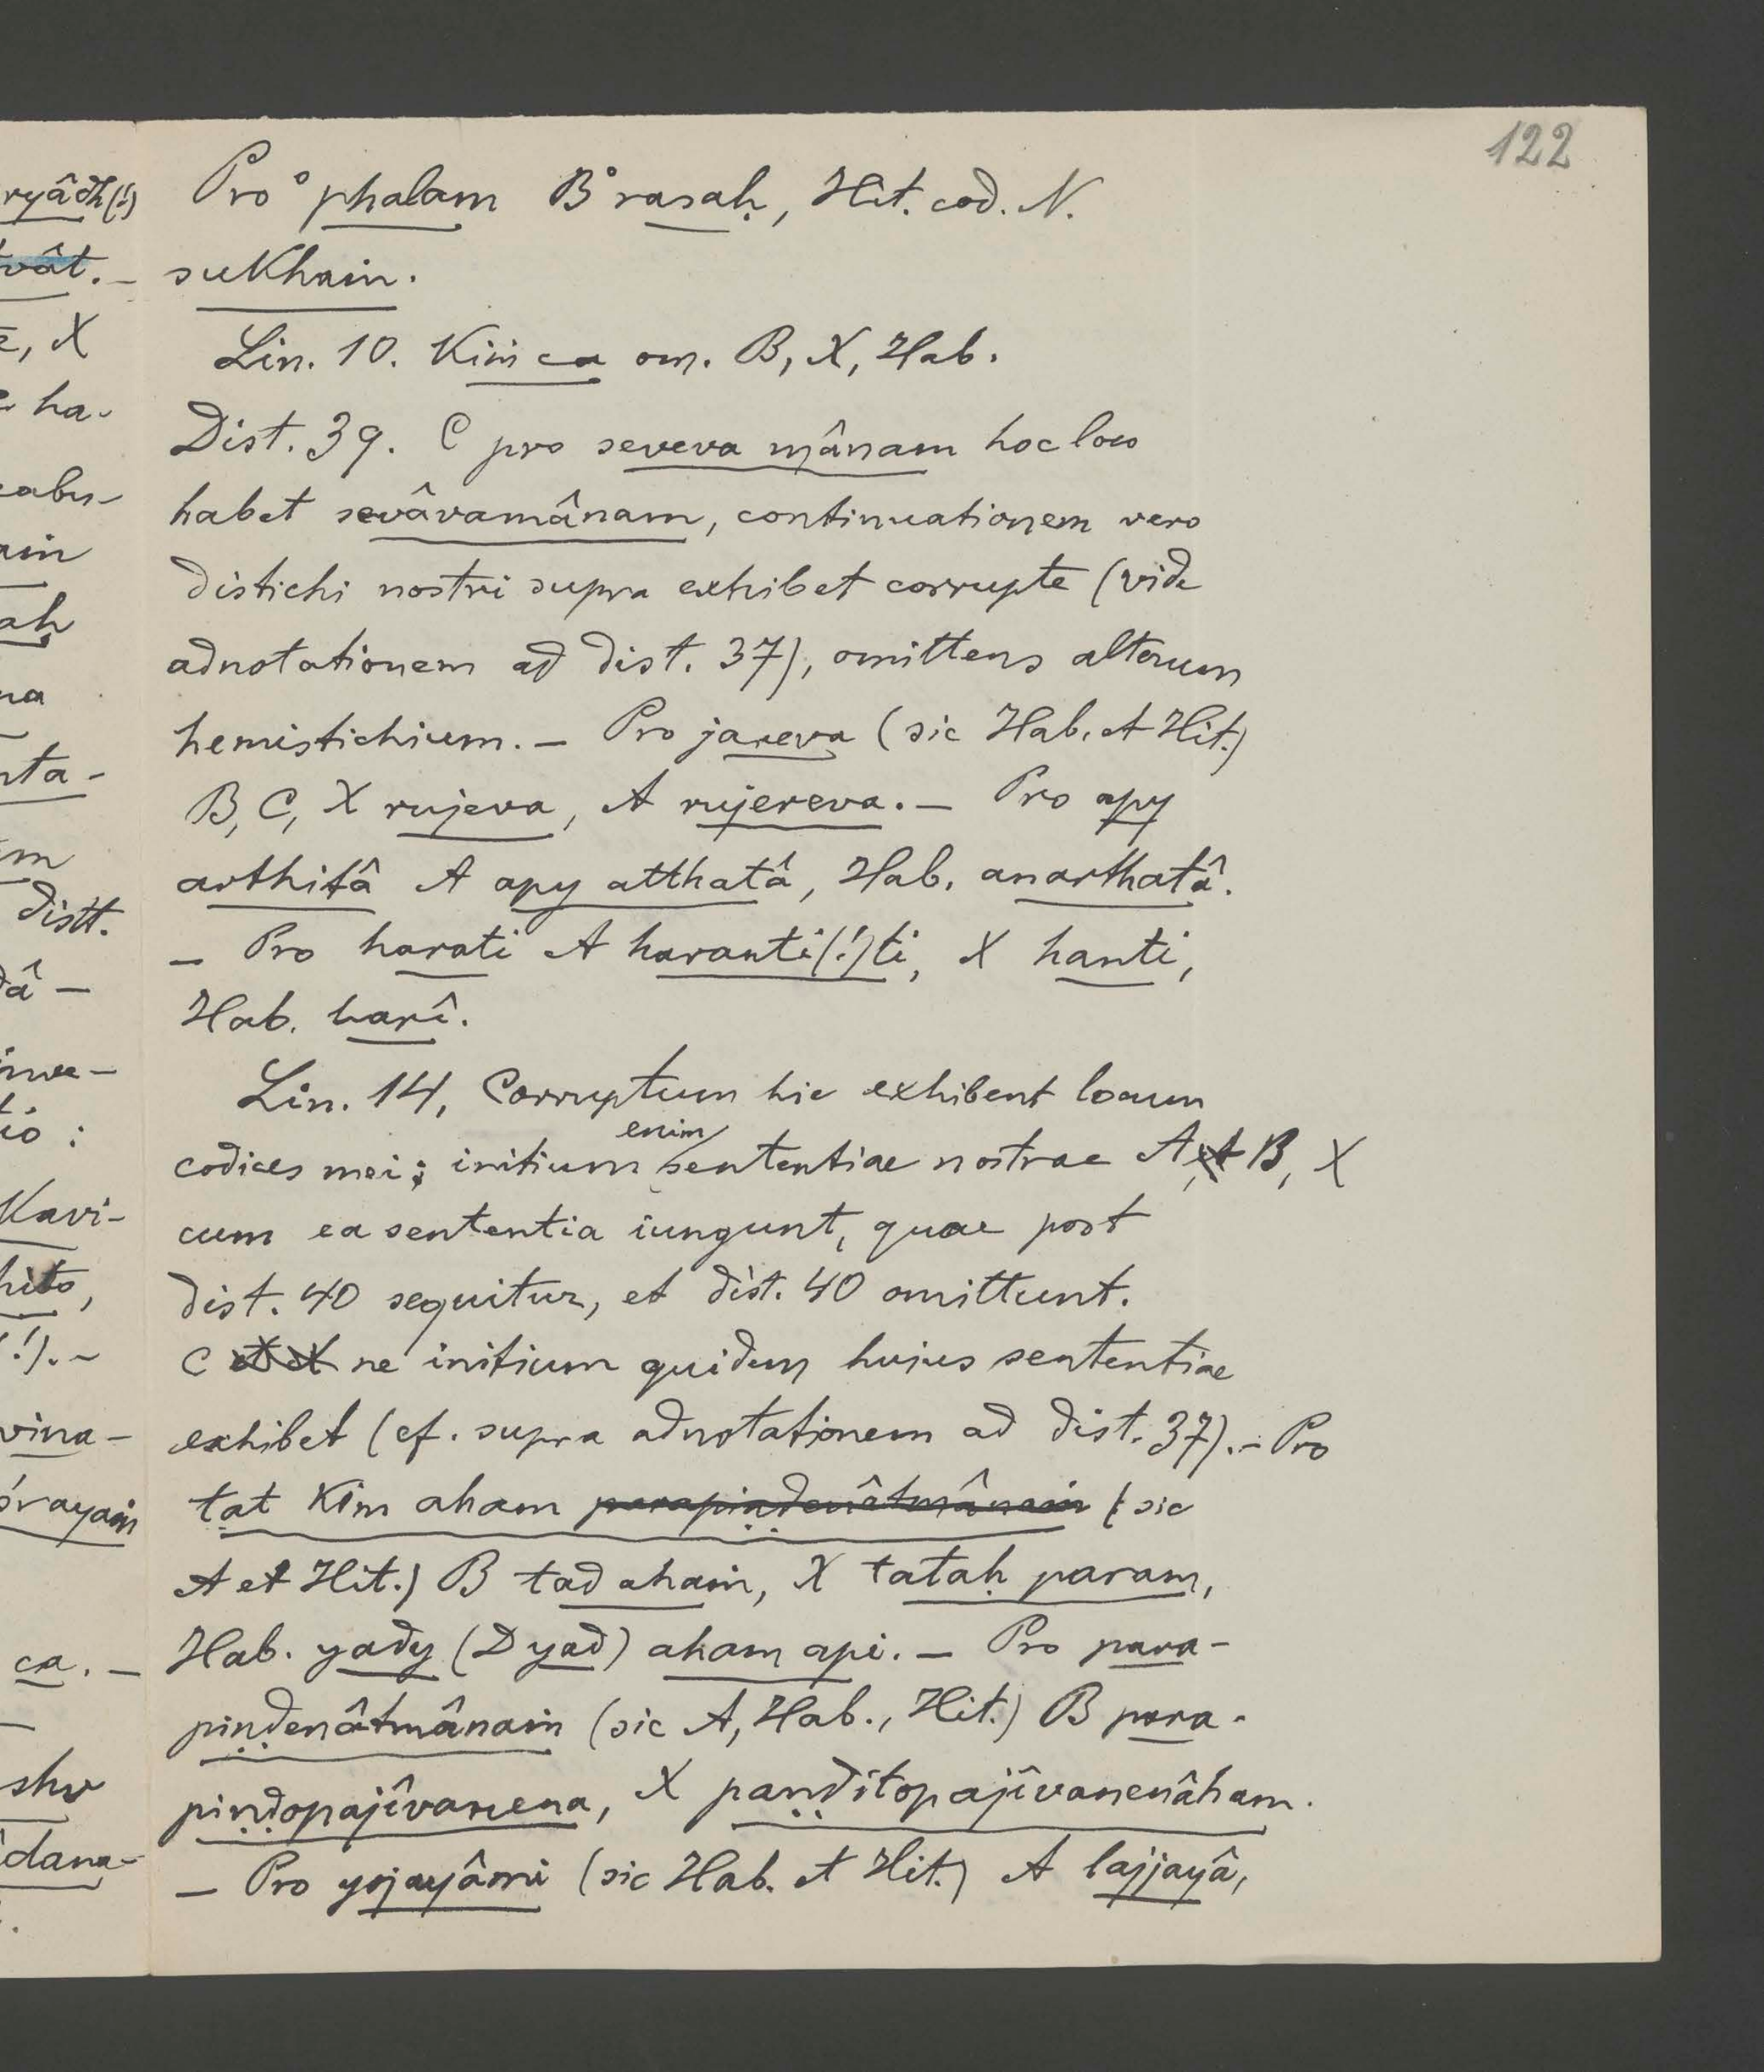 122
Pro °phalam B °rasaḥ, Hit. cod. N.
sukhaṁ.
Lin. 10. Kiṁ ca om. B, X, Hab.
Dist. 39. C pro seveva mânam hoc loco
habet sevâvamânam, continuationem vero
distichi nostri supra exhibet corrupte (vide
adnotationem ad dist. 37), omittens alterum
hemistichium. – Pro jareva (sic Hab. et Hit.)
B, C, X rujeva, A rujereva. – Pro apy
arthitâ A apy atthatâ, Hab. anarthatâ.
– Pro harati A haranti(!)ti, X hanti,
Hab. harî.
Lin. 14. Corruptum hic exhibent locum
codices mei; initium enim sententiae nostrae A, et B, X
cum ea sententia iungunt, quae post
dist. 40 sequitur, et dist. 40 omittunt.
C ne initium quidem hujus sententiae
exhibet (cf. supra adnotationem ad dist. 37). – Pro
tat kim aham parapiṇḍenâtmânaṁ (sic
A et Hit.) B tad ahaṁ, X tataḥ param,
Hab. yady (D yad) aham api. – Pro para-
piṇḍenâtmânaṁ (sic A, Hab., Hit.) B para-
piṇḍopajîvanena, X paṇḍitopajîvanenâham.
– Pro yojayâmi (sic Hab. et Hit.) A lajjayâ,
ryâdh(!)
tvât. –
, X
ha-
ah
na
nta-
m
distt.
dâ –
io :
Kavi-
hito,
(!). –
vina-
çrayaṁ
ca. –
–
shv
dana-